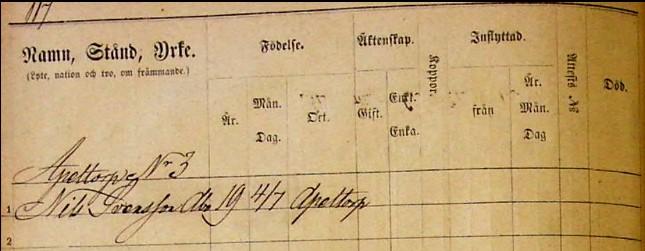 117
Namn, Stånd, Yrke.
(Lyte, nation och tro, om främmande.)
Födelse.
Äktenskap.
Koppor.
Inflyttad.
Attestens No
Död.
År.
Mån.
Dag.
Ort.
Gift.
Enkl.
Enka.
från
År.
Mån.
Dag
Apeltorp Nr 3
1 Nils Svensson 19 4/7 Apeltorp
2